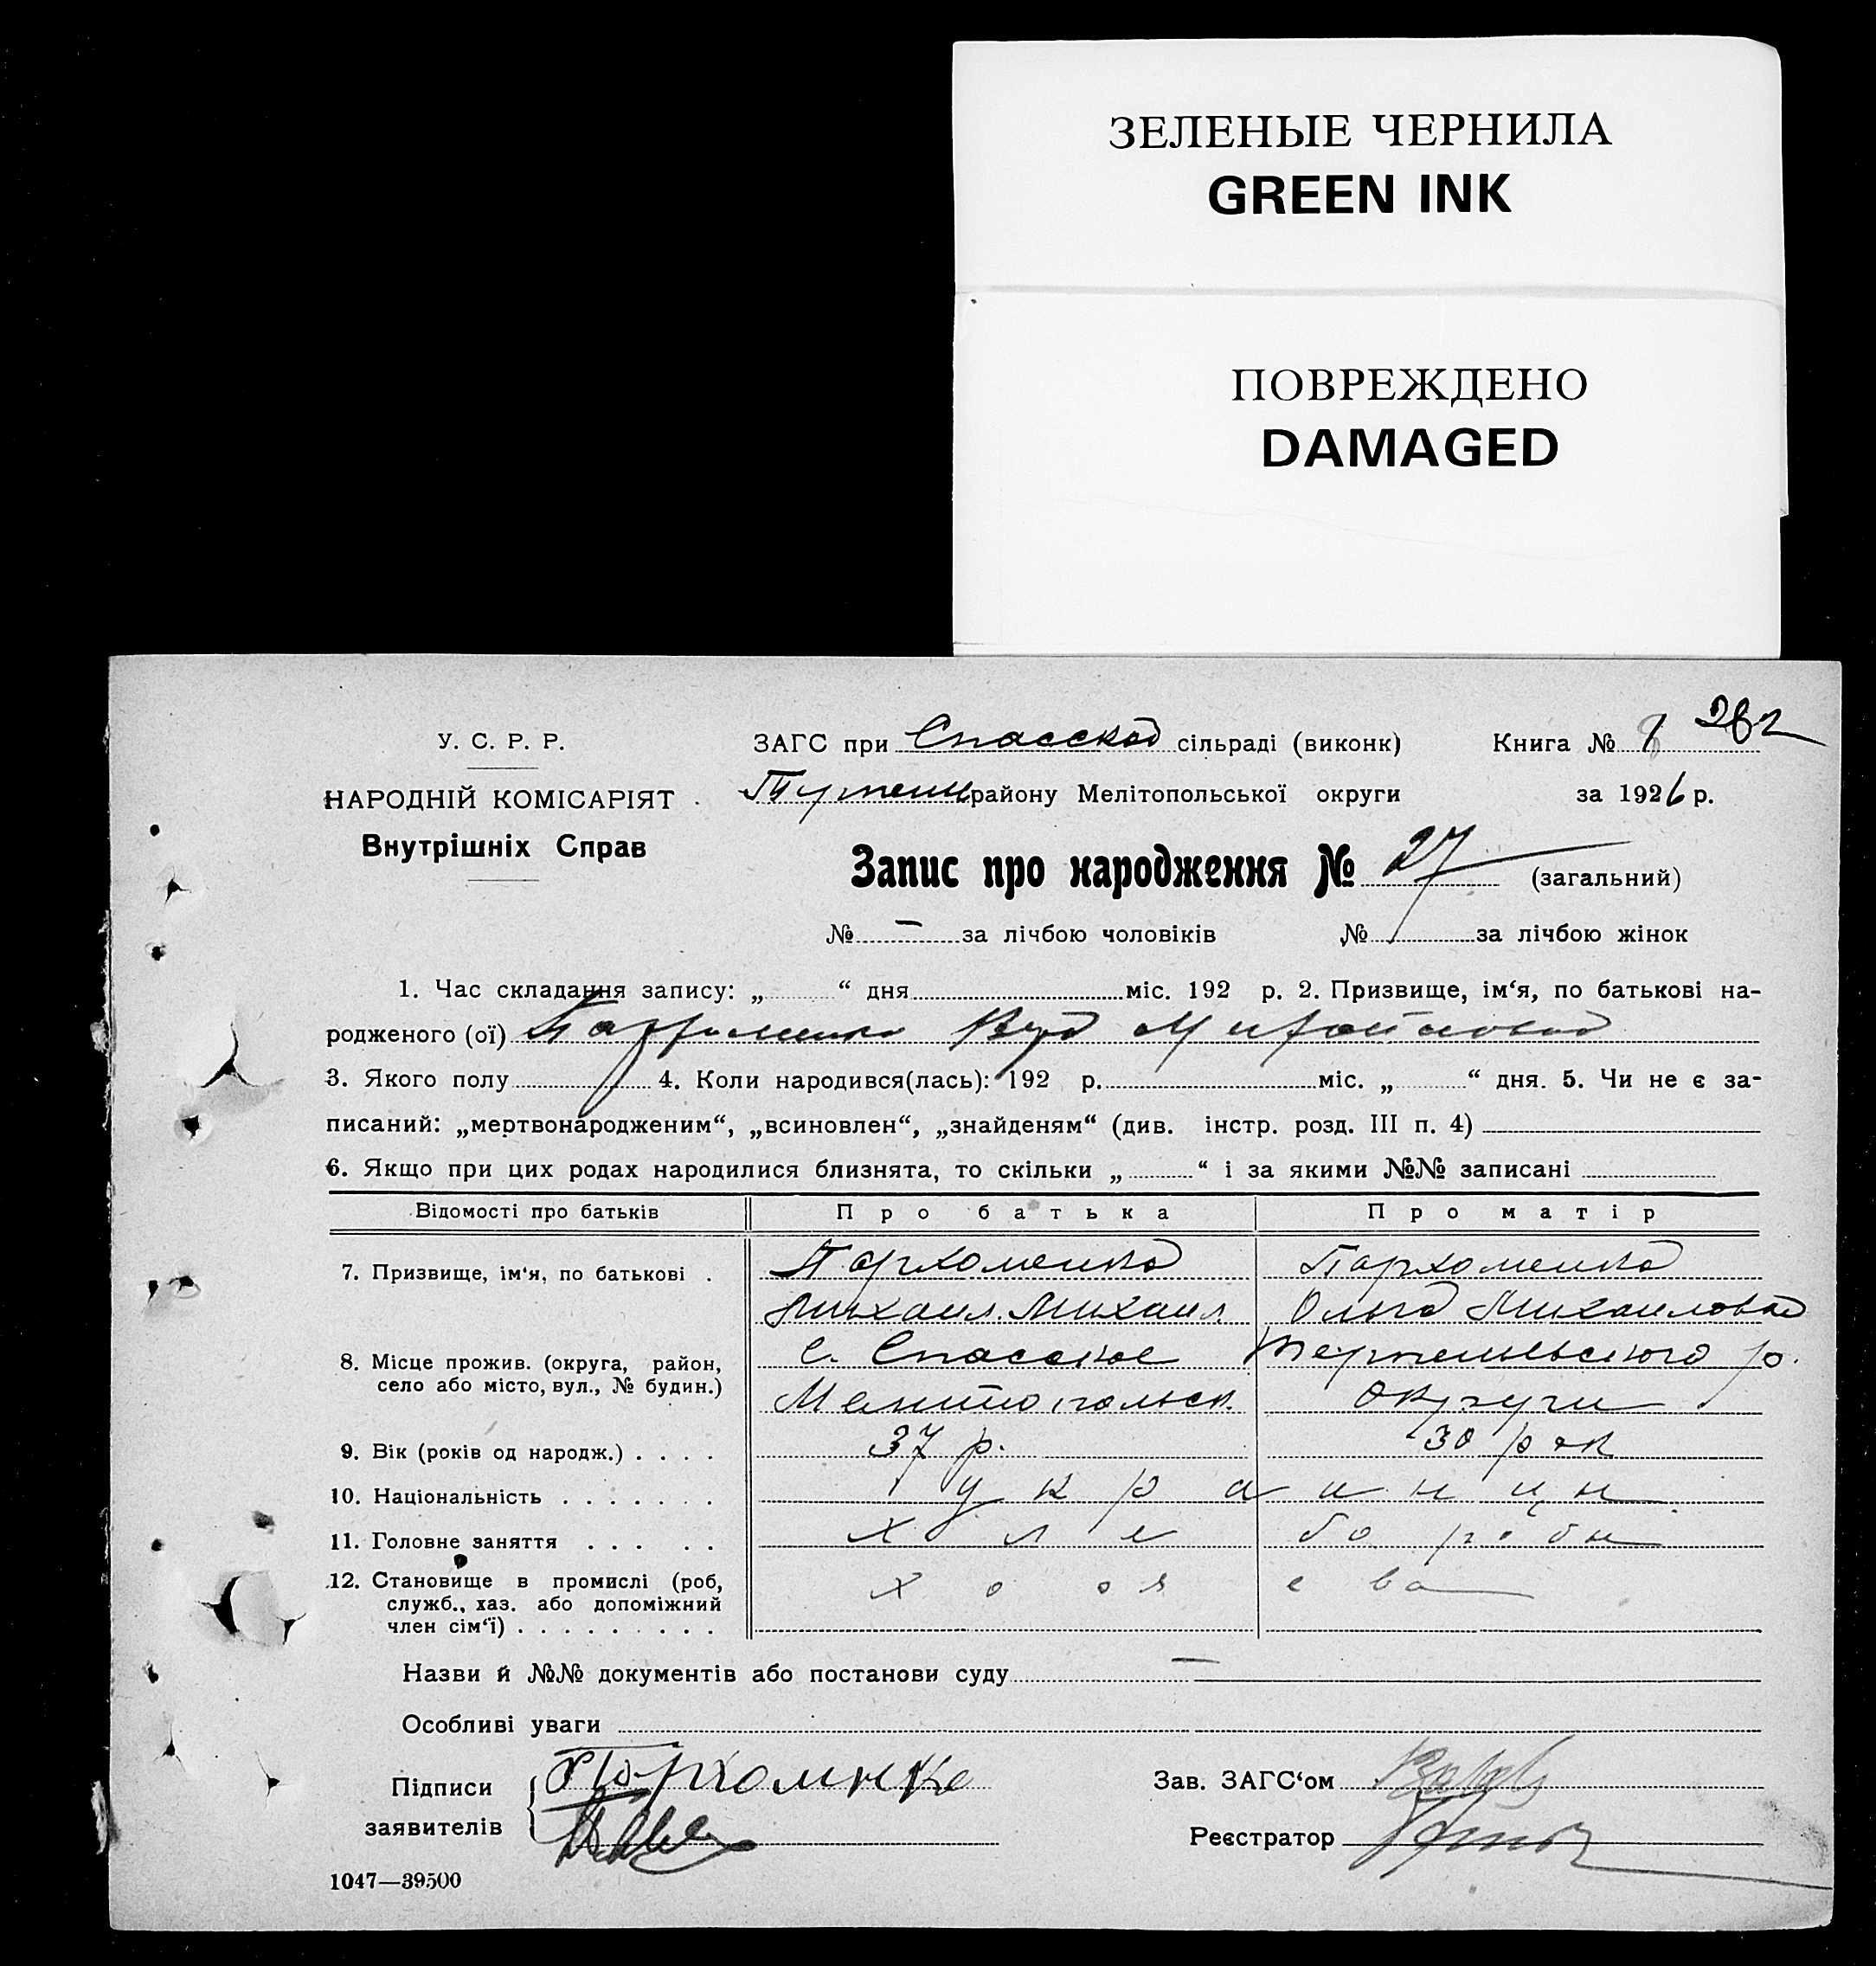 ЗЕЛЕНЫЕ ЧЕРНИЛА
GREEN INK
ПОВРЕЖДЕНО
DAMAGED
282
У. С. Р. Р.
НАРОДНІЙ КОМІСАРІЯТ
Внутрішніх Справ
ЗАГС при Спасской сільраді (виконк) Книга №
району Мелітопольської округи за 1926 р.
Запис про народження № 27 (загальний)
№ — за лічбою чоловіків № за лічбою жінок
1. Час складання запису: „ “ дня міс. 192 р. 2. Призвище, ім‘я, по батькові на-
родженого (ої)
3. Якого полу 4. Коли народився(лась): 192 р. міс. „ “ дня. 5. Чи не є за-
писаний: „мертвонародженим“, „всиновлен“, „знайденям“ (див. інстр. розд. III п. 4)
6. Якщо при цих родах народилися близнята, то скільки „ “ і за якими №№ записані
Відомості про батьків Про батька Про матір
7. Призвище, ім‘я, по батькові . Пархоменко Пархоменко
Михаил. Михаил. Ольга Михаиловна
8. Місце прожив. (округа, район, село або місто, вул., № будин.) с. Спасское р.
Мелитопольск. Округи
9. Вік (років од народж.) . . . . 37 р. 30 рок
10. Національність . . . . . . . украинцы
11. Головне заняття . . . . . хлеборобы
12. Становище в промислі (роб,
служб., хаз. або допоміжний
член сім‘ї) . . . . . . . . .
Назви й №№ документів або постанови суду —
Особливі уваги
Підписи Пархоминко Зав. ЗАГС‘ом
заявителів Реєстратор
1047—39500